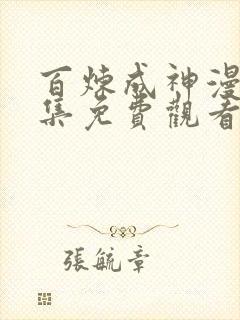 百煉成神漫
集免費觀看
張毓章